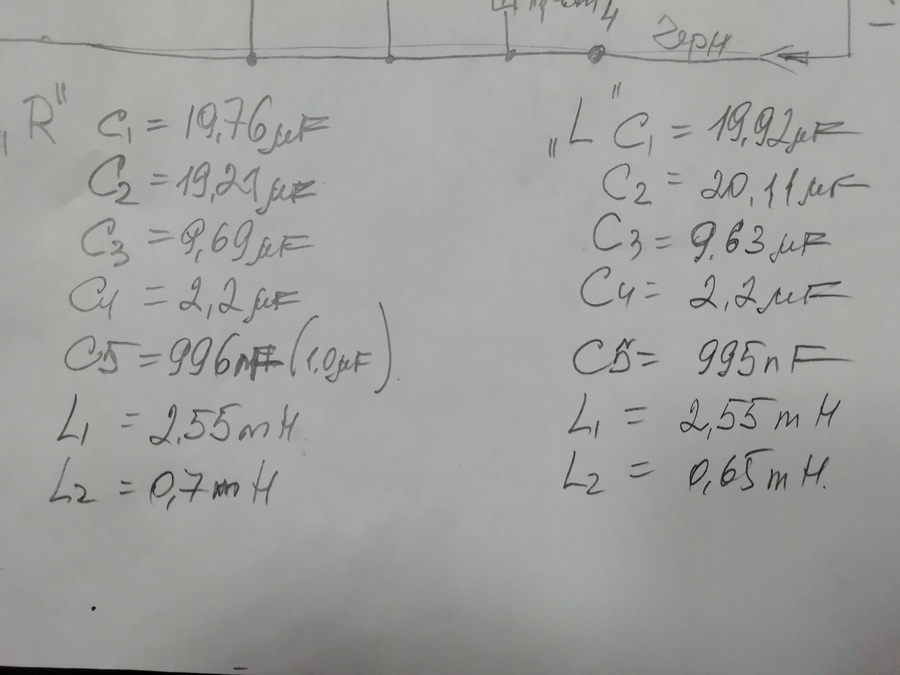 4
Черн
"R" C1 = 19,76 μF
C2 = 19,21 μF
C3 = 9,69 μF
C4 = 2,2 μF
C5 = 996 nF (1.0 μF)
L1 = 2.55 mH
L2 = 0,7 mH
"L" C1 = 19,92 μF
C2 = 20,11 μF
C3 = 9.63 μF
C4 = 2.2 μF
C5 = 995 nF
L1 = 2,55 mH
L2 = 0,65 mH.